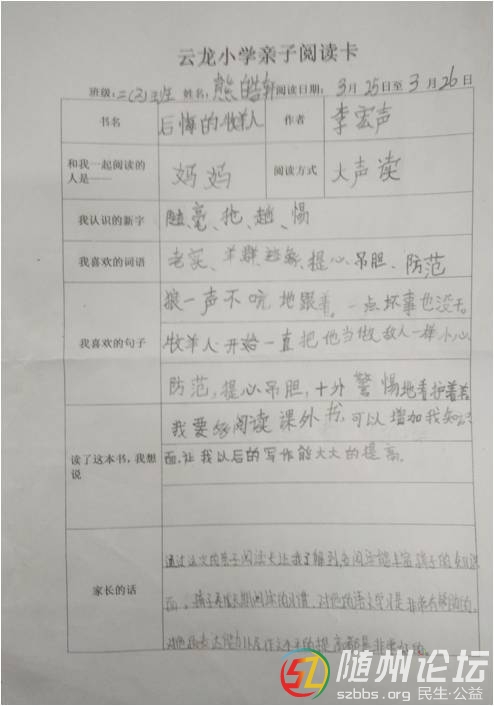 云龙小学亲子阅读卡
班级:二(2)班 姓名:熊皓轩 阅读日期: 3月25日至3月26日
书名 后悔的牧羊人 作者 李宏声
和我一起阅读的人是—— 妈妈 阅读方式 大声读
我认识的新字 毫、拖、越、惕
我喜欢的词语 老实、羊群、提心吊胆、防范
我喜欢的句子
狼一声不吭地跟着,一点坏事也没干。
牧羊人开始一直把他当做敌人一样小心
防范,提心吊胆,十分警惕地看护着羊
读了这本书,我想说
我要多阅读课外书,可以增加我知识
面,让我以后的写作能大大的提高。
家长的话
通过这次的亲子阅读卡让我了解到,多阅读能丰富孩子的知识
面。孩子养成长期阅读的习惯,对他的语文学习是非常有帮助的。
对他的表达能力以及作文水平的提高都是非常好的。
随州论坛
szbbs.org 民生·公益